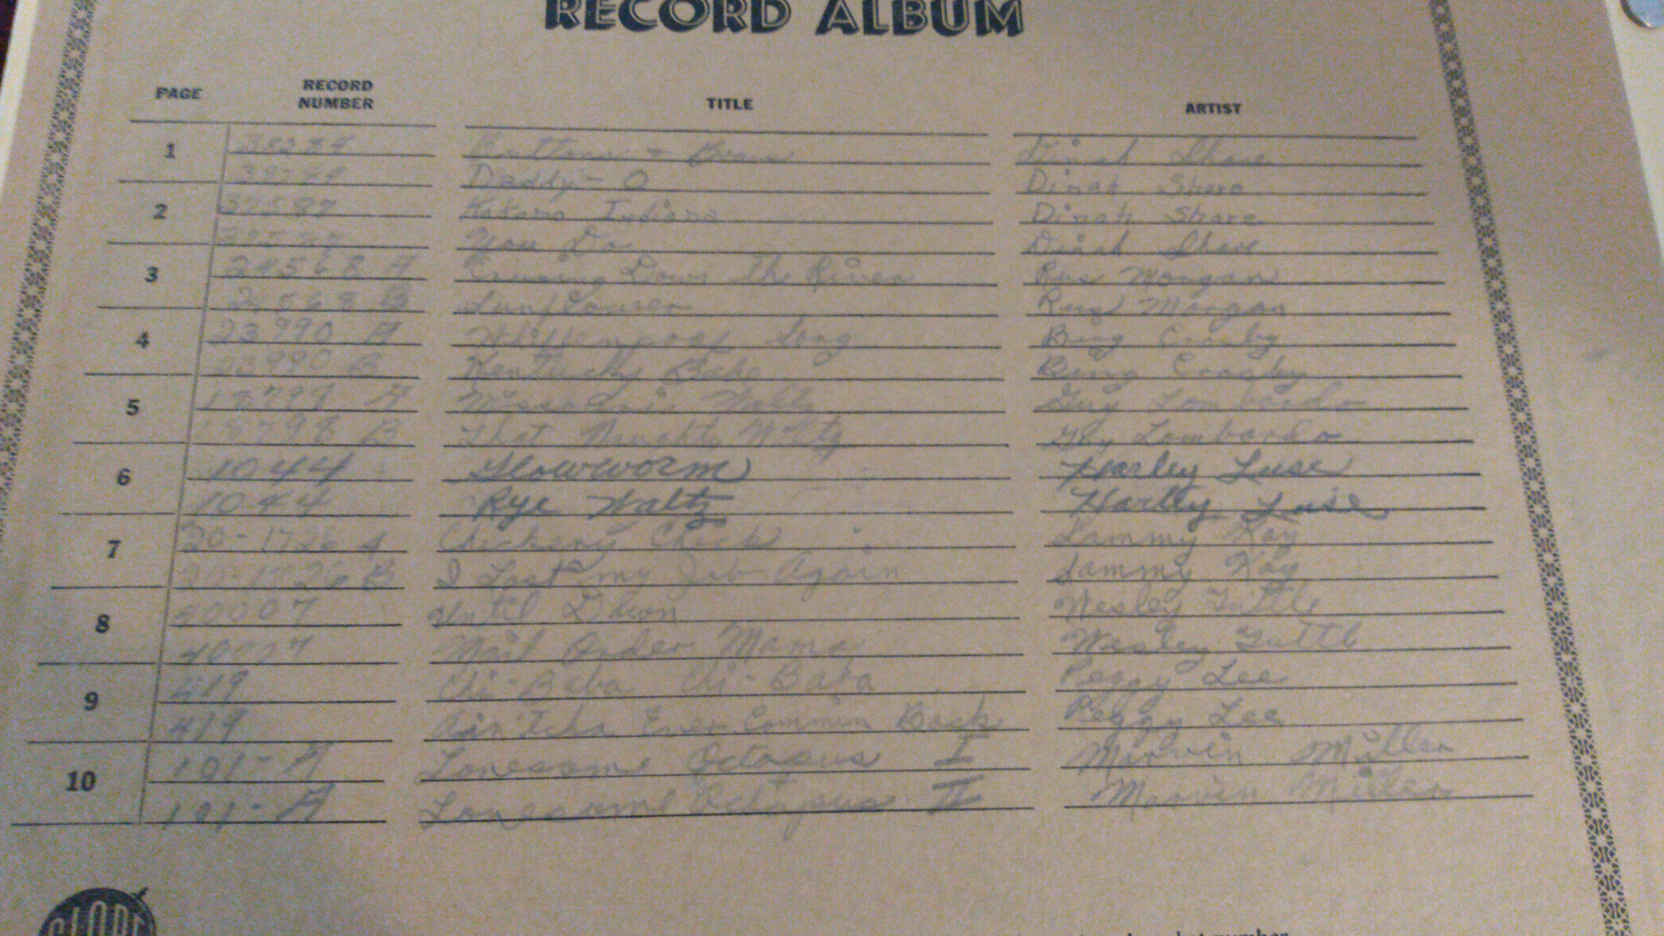 RECORD ALBUM
PAGE RECORD NUMBER TITLE ARTIST
1 38284 Buttons + Bows Dinah Shore
Daddy - O Dinah Shore
2 37587 Kokomo Indiana Dinah Shore
You Do Dinah Shore
3 24568 A Crusing Down The River Rus Morgan
24568 B Sunflower Rus Morgan
4 23990 A Whiffenpoof Song Bing Crosby
23990 B Kentucky Babe Bing Crosby
5 18798 A Guy Lombardo
18798 B That Naughty Waltz Guy Lombardo
6 1044 Glowworm Harley Luse
1044 Rye Waltz Harley Luse
7 20-1726 A Chickery Chick Sammy Kay
20-1726 B I Lost my Job Again Sammy Kay
8 40007 Until Dawn Wesley Tuttle
40007 Mail Order Mama Wesley Tuttle
9 419 Chi-Baba Chi-Baba Peggy Lee
419 Ain'tcha Ever Commin Back Peggy Lee
10 101-A Lonesome Octopus I Marvin Miller
101-A Lonesome Octopus II Marvin Miller
GLOBE